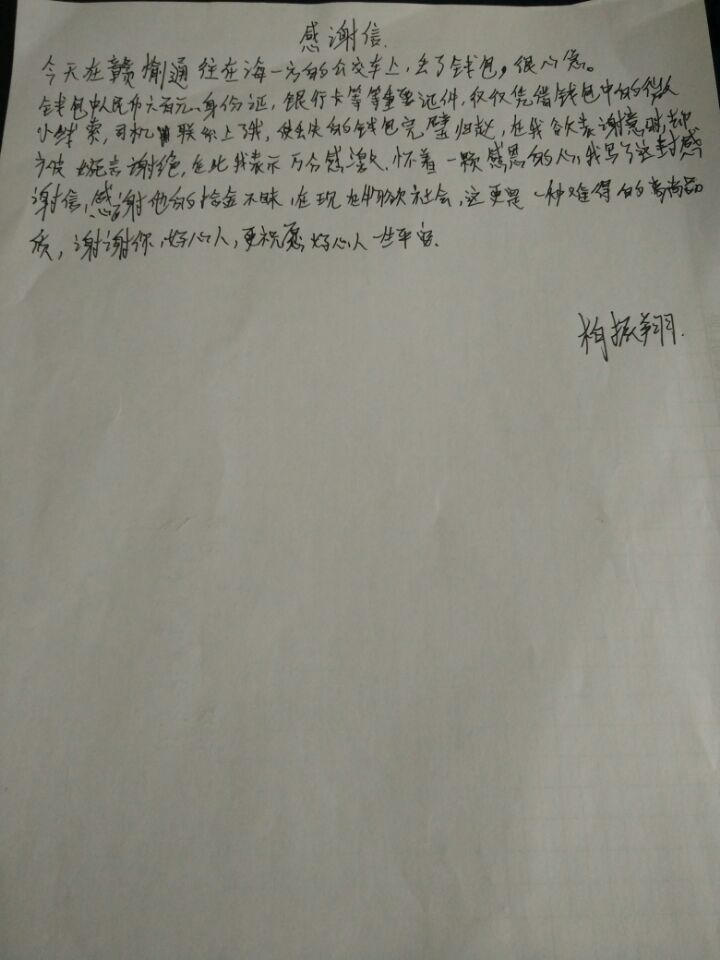 感谢信.
今天在赣榆通往在海一方的公交车上,丢了钱包,很心急。
钱包中人民币六百元、身份证,银行卡等等重要证件,仅仅凭借钱包中的微
小线索,司机联系上了我,使丢失的钱包完璧归赵,在我欲表谢意时,却
被婉言谢绝,在此我表示万分感激.怀着一颗感恩的心,我写了这封感
谢信,感谢他的拾金不昧,在现社会,这更是一种难得的高尚品
质,谢谢你,好心人,更祝愿好心人一生平安.
柏振翔.